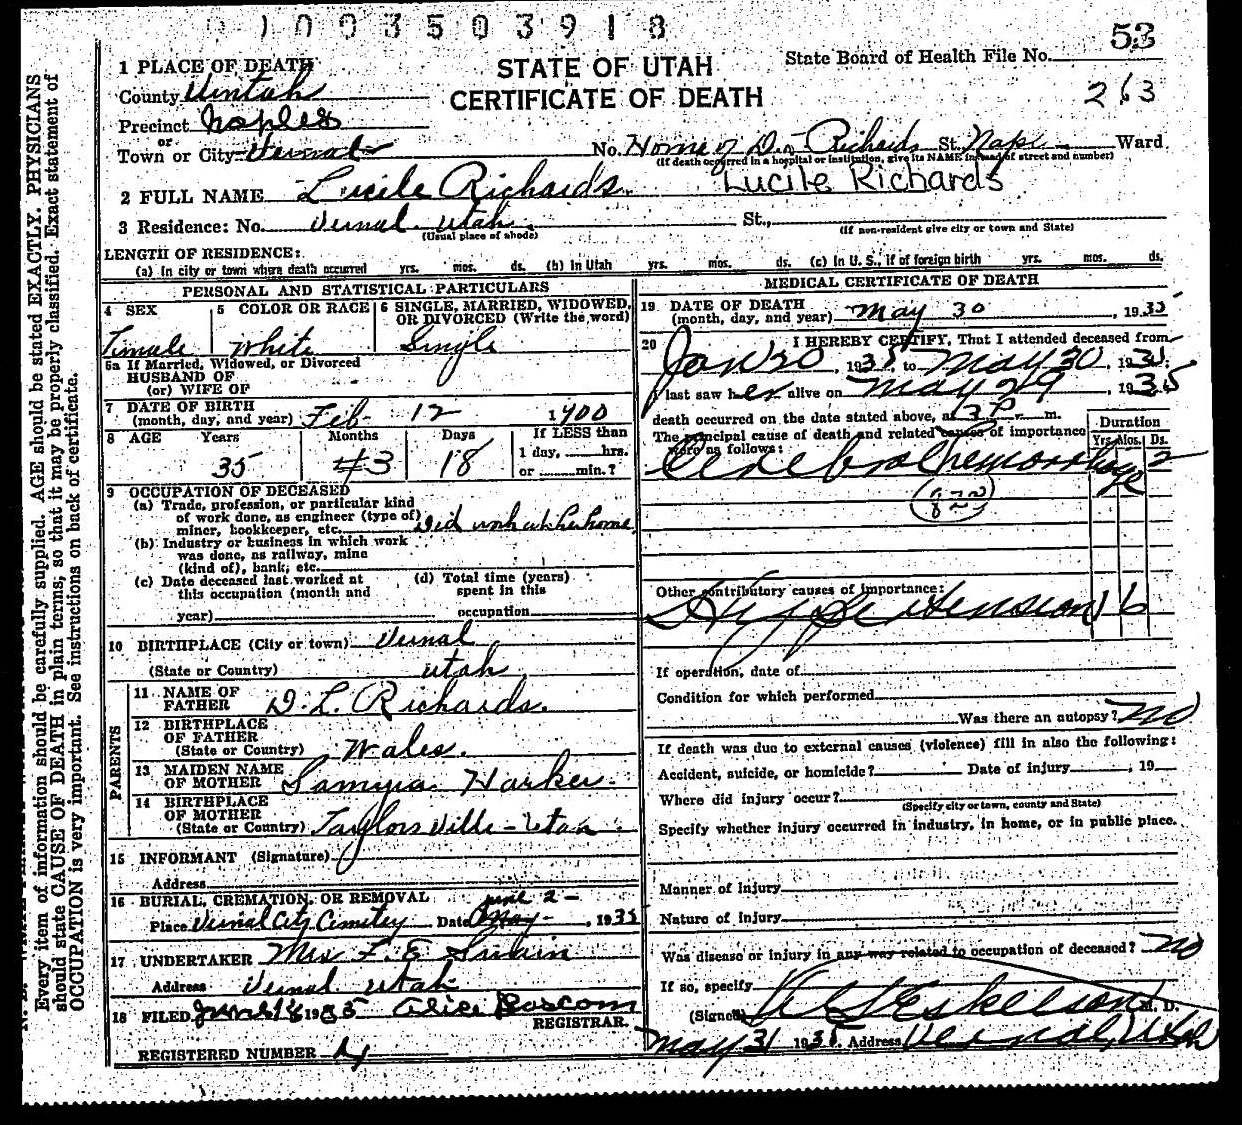 1003503918
53
State Board of Health File No.
STATE OF UTAH
CERTIFICATE OF DEATH
263
1 PLACE OF DEATH
County Uintah
Precinct Naples
or
Town or City Vernal
No. Home of D. Richards St. Napl Ward
(If death occurred in a hospital or institution, give its NAME instead of street and number)
2 FULL NAME Lucile Richards Lucile Richards
3 Residence: No. Vernal Utah. St.,
(Usual place of abode) (If non-resident give city or town and State)
LENGTH OF RESIDENCE:
(a) In city or town where death occurred yrs. mos. ds. (b) In Utah yrs. mos. ds. (c) In U. S., if of foreign birth yrs. mos. ds.
PERSONAL AND STATISTICAL PARTICULARS
4 SEX 5 COLOR OR RACE 6 SINGLE, MARRIED, WIDOWED,
OR DIVORCED (Write the word)
Female White Single
6a If Married, Widowed, or Divorced
HUSBAND OF
(or) WIFE OF
7 DATE OF BIRTH
(month, day, and year) Feb 12 1900
8 AGE Years Months Days If LESS than
1 day, hrs.
35 3 18 or min.?
9 OCCUPATION OF DECEASED
(a) Trade, profession, or particular kind
of work done, as engineer (type of)
miner, bookkeeper, etc. Did work at her home
(b) Industry or business in which work
was done, as railway, mine
(kind of), bank, etc.
(c) Date deceased last worked at (d) Total time (years)
this occupation (month and spent in this
year) occupation
10 BIRTHPLACE (City or town) Vernal
(State or Country) Utah
PARENTS
11 NAME OF
FATHER D. L. Richards.
12 BIRTHPLACE
OF FATHER
(State or Country) Wales.
13 MAIDEN NAME
OF MOTHER Harker.
14 BIRTHPLACE
OF MOTHER
(State or Country) Taylorsville - Utah
15 INFORMANT (Signature)
Address
16 BURIAL, CREMATION, OR REMOVAL June 2 -
Place Vernal City Cemetery Date May - , 1935
17 UNDERTAKER Mrs F. E. Swain
Address Vernal Utah
18 FILED June 1935 Alice
REGISTRAR.
REGISTERED NUMBER
MEDICAL CERTIFICATE OF DEATH
19 DATE OF DEATH
(month, day, and year) May 30 , 1935
20 I HEREBY CERTIFY, That I attended deceased from
Jan 20 , 1935 to May 30 , 1935
I last saw her alive on May 29 , 1935
death occurred on the date stated above, at 3 P. m.
The principal cause of death and related causes of importance
were as follows:
Duration
Yrs. Mos. Ds.
Cerebral hemorrhage 2
Other contributory causes of importance:
Hypertension 6
If operation, date of
Condition for which performed
Was there an autopsy? No
If death was due to external causes (violence) fill in also the following:
Accident, suicide, or homicide? Date of injury , 19
Where did injury occur?
(Specify city or town, county and State)
Specify whether injury occurred in industry, in home, or in public place.
Manner of injury
Nature of injury
Was disease or injury in any way related to occupation of deceased? No
If so, specify
(Signed) Eskelson M. D.
May 31 1935 Address Vernal, Utah
Every item of information should be carefully supplied. AGE should be stated EXACTLY. PHYSICIANS
should state CAUSE OF DEATH in plain terms, so that it may be properly classified. Exact statement of
OCCUPATION is very important. See instructions on back of certificate.